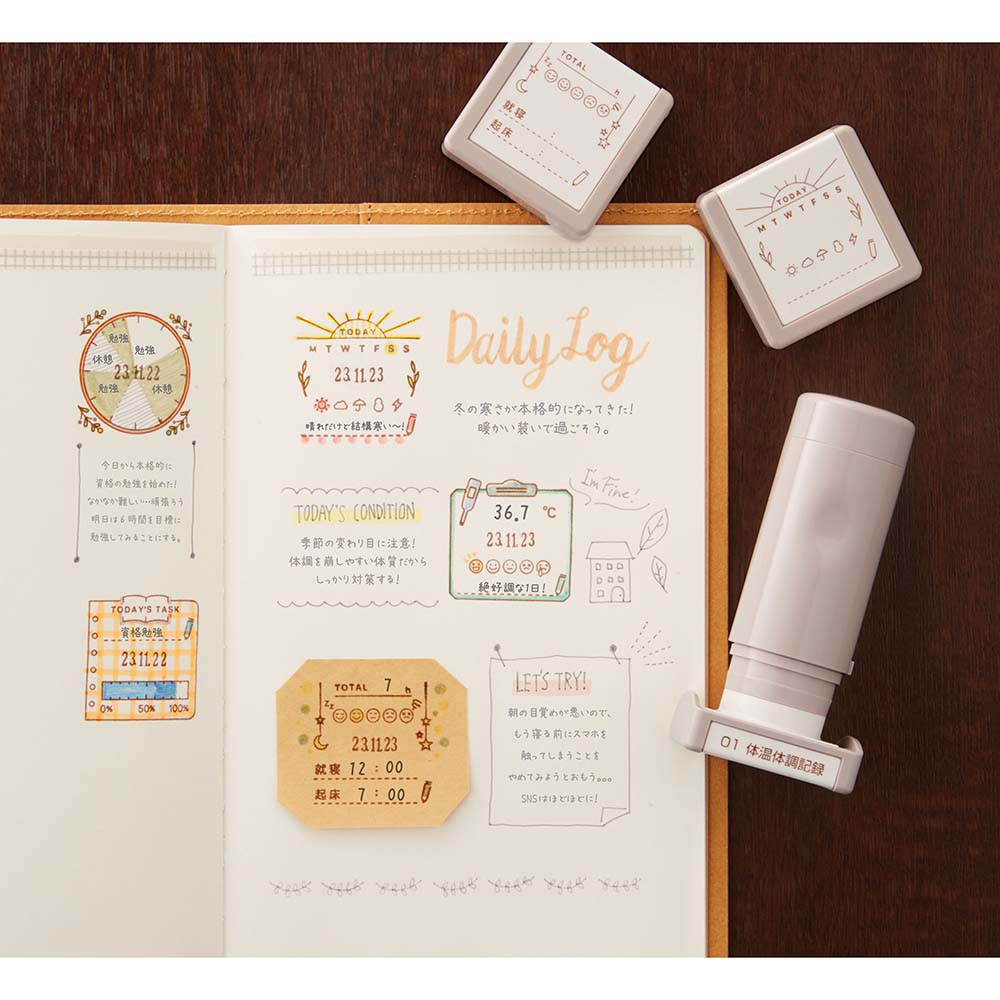 TOTAL
h
zz
就寝 :
起床 :
TODAY
M T W T F S S
勉強
勉強
休憩
23.11.22
勉強
休憩
今日から本格的に
資格の勉強を始めた!
なかなか難しい…頑張ろう
明日は6時間を目標に
勉強してみることにする。
TODAY'S TASK
資格勉強
23.11.22
0% 50% 100%
TODAY
M T W T F S S
23.11.23
晴れだけど結構寒い〜!
Daily Log
冬の寒さが本格的になってきた!
暖かい装いで過ごそう。
TODAY'S CONDITION
季節の変わり目に注意!
体調を崩しやすい体質だから
しっかり対策する!
36.7 ℃
23.11.23
絶好調な1日!
I'm Fine!
TOTAL 7 h
zz
23.11.23
就寝 12 : 00
起床 7 : 00
LET'S TRY!
朝の目覚めが悪いので、
もう寝る前にスマホを
触ってしまうことを
やめてみようとおもう。。。
SNSはほどほどに!
01 体温体調記録